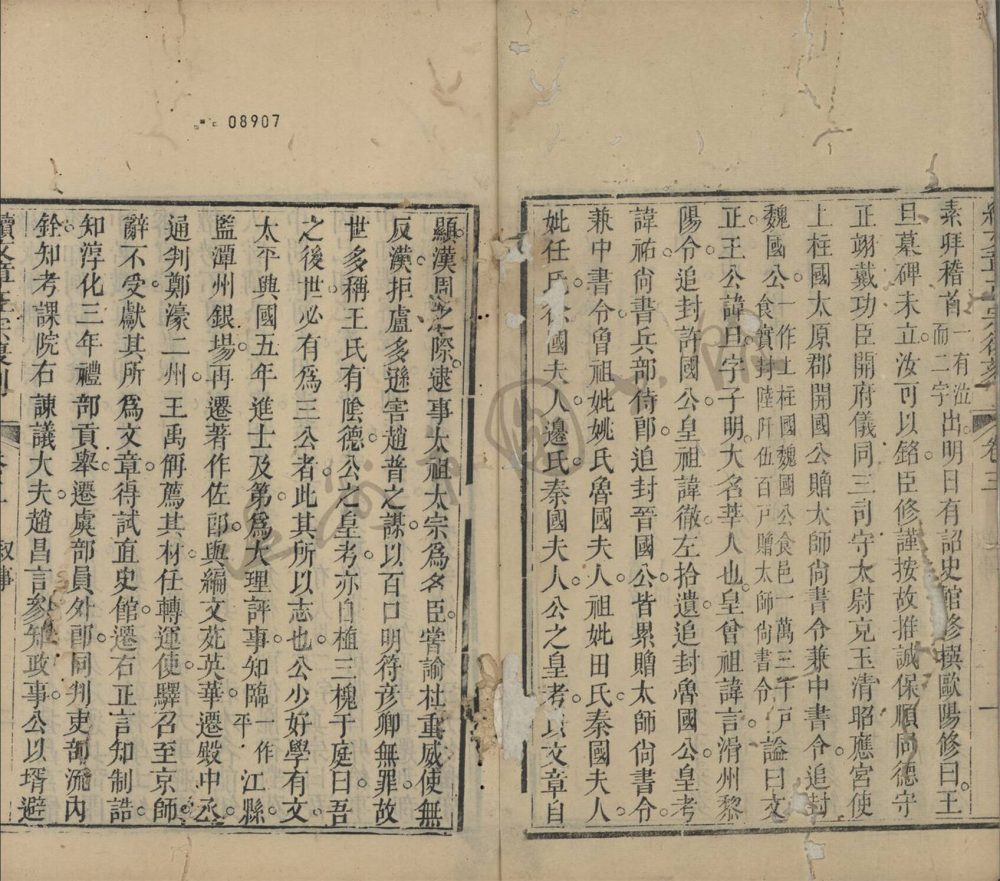 素拜稽首一有泣而二字出明日有詔史館修撰歐陽修曰王
旦墓碑未立汝可以銘臣修謹按故推誠保順同德守
正翊戴功臣開府儀同三司守太尉充玉清昭應宮使
上柱國太原郡開國公贈太師尚書令兼中書令追封
魏國公一作上柱國魏國公食邑一萬三千戶食實封陸阡伍百戶贈太師尚書令諡曰文
正王公諱旦字子明大名莘人也皇曾祖諱言滑州黎
陽令追封許國公皇祖諱徹左拾遺追封魯國公皇考
諱祐尚書兵部侍郎追封晉國公皆累贈太師尚書令
兼中書令曾祖妣姚氏魯國夫人祖妣田氏秦國夫人
妣任氏徐國夫人邊氏秦國夫人公之皇考以文章自
卷三
一
顯漢周之際逮事太祖太宗為名臣嘗諭杜重威使無
反漢拒盧多遜害趙普之謀以百口明符彥卿無罪故
世多稱王氏有陰德公之皇考亦自植三槐于庭曰吾
之後世必有為三公者此其所以志也公少好學有文
太平興國五年進士及第為大理評事知臨一作平江縣
監潭州銀場再遷著作佐郎與編文苑英華遷殿中丞
通判鄭濠二州王禹偁薦其材任轉運使驛召至京師
辭不受獻其所為文章得試直史館遷右正言知制誥
知淳化三年禮部貢舉遷虞部員外郎同判吏部流內
銓知考課院右諫議大夫趙昌言參知政事公以壻避
敘事
08907